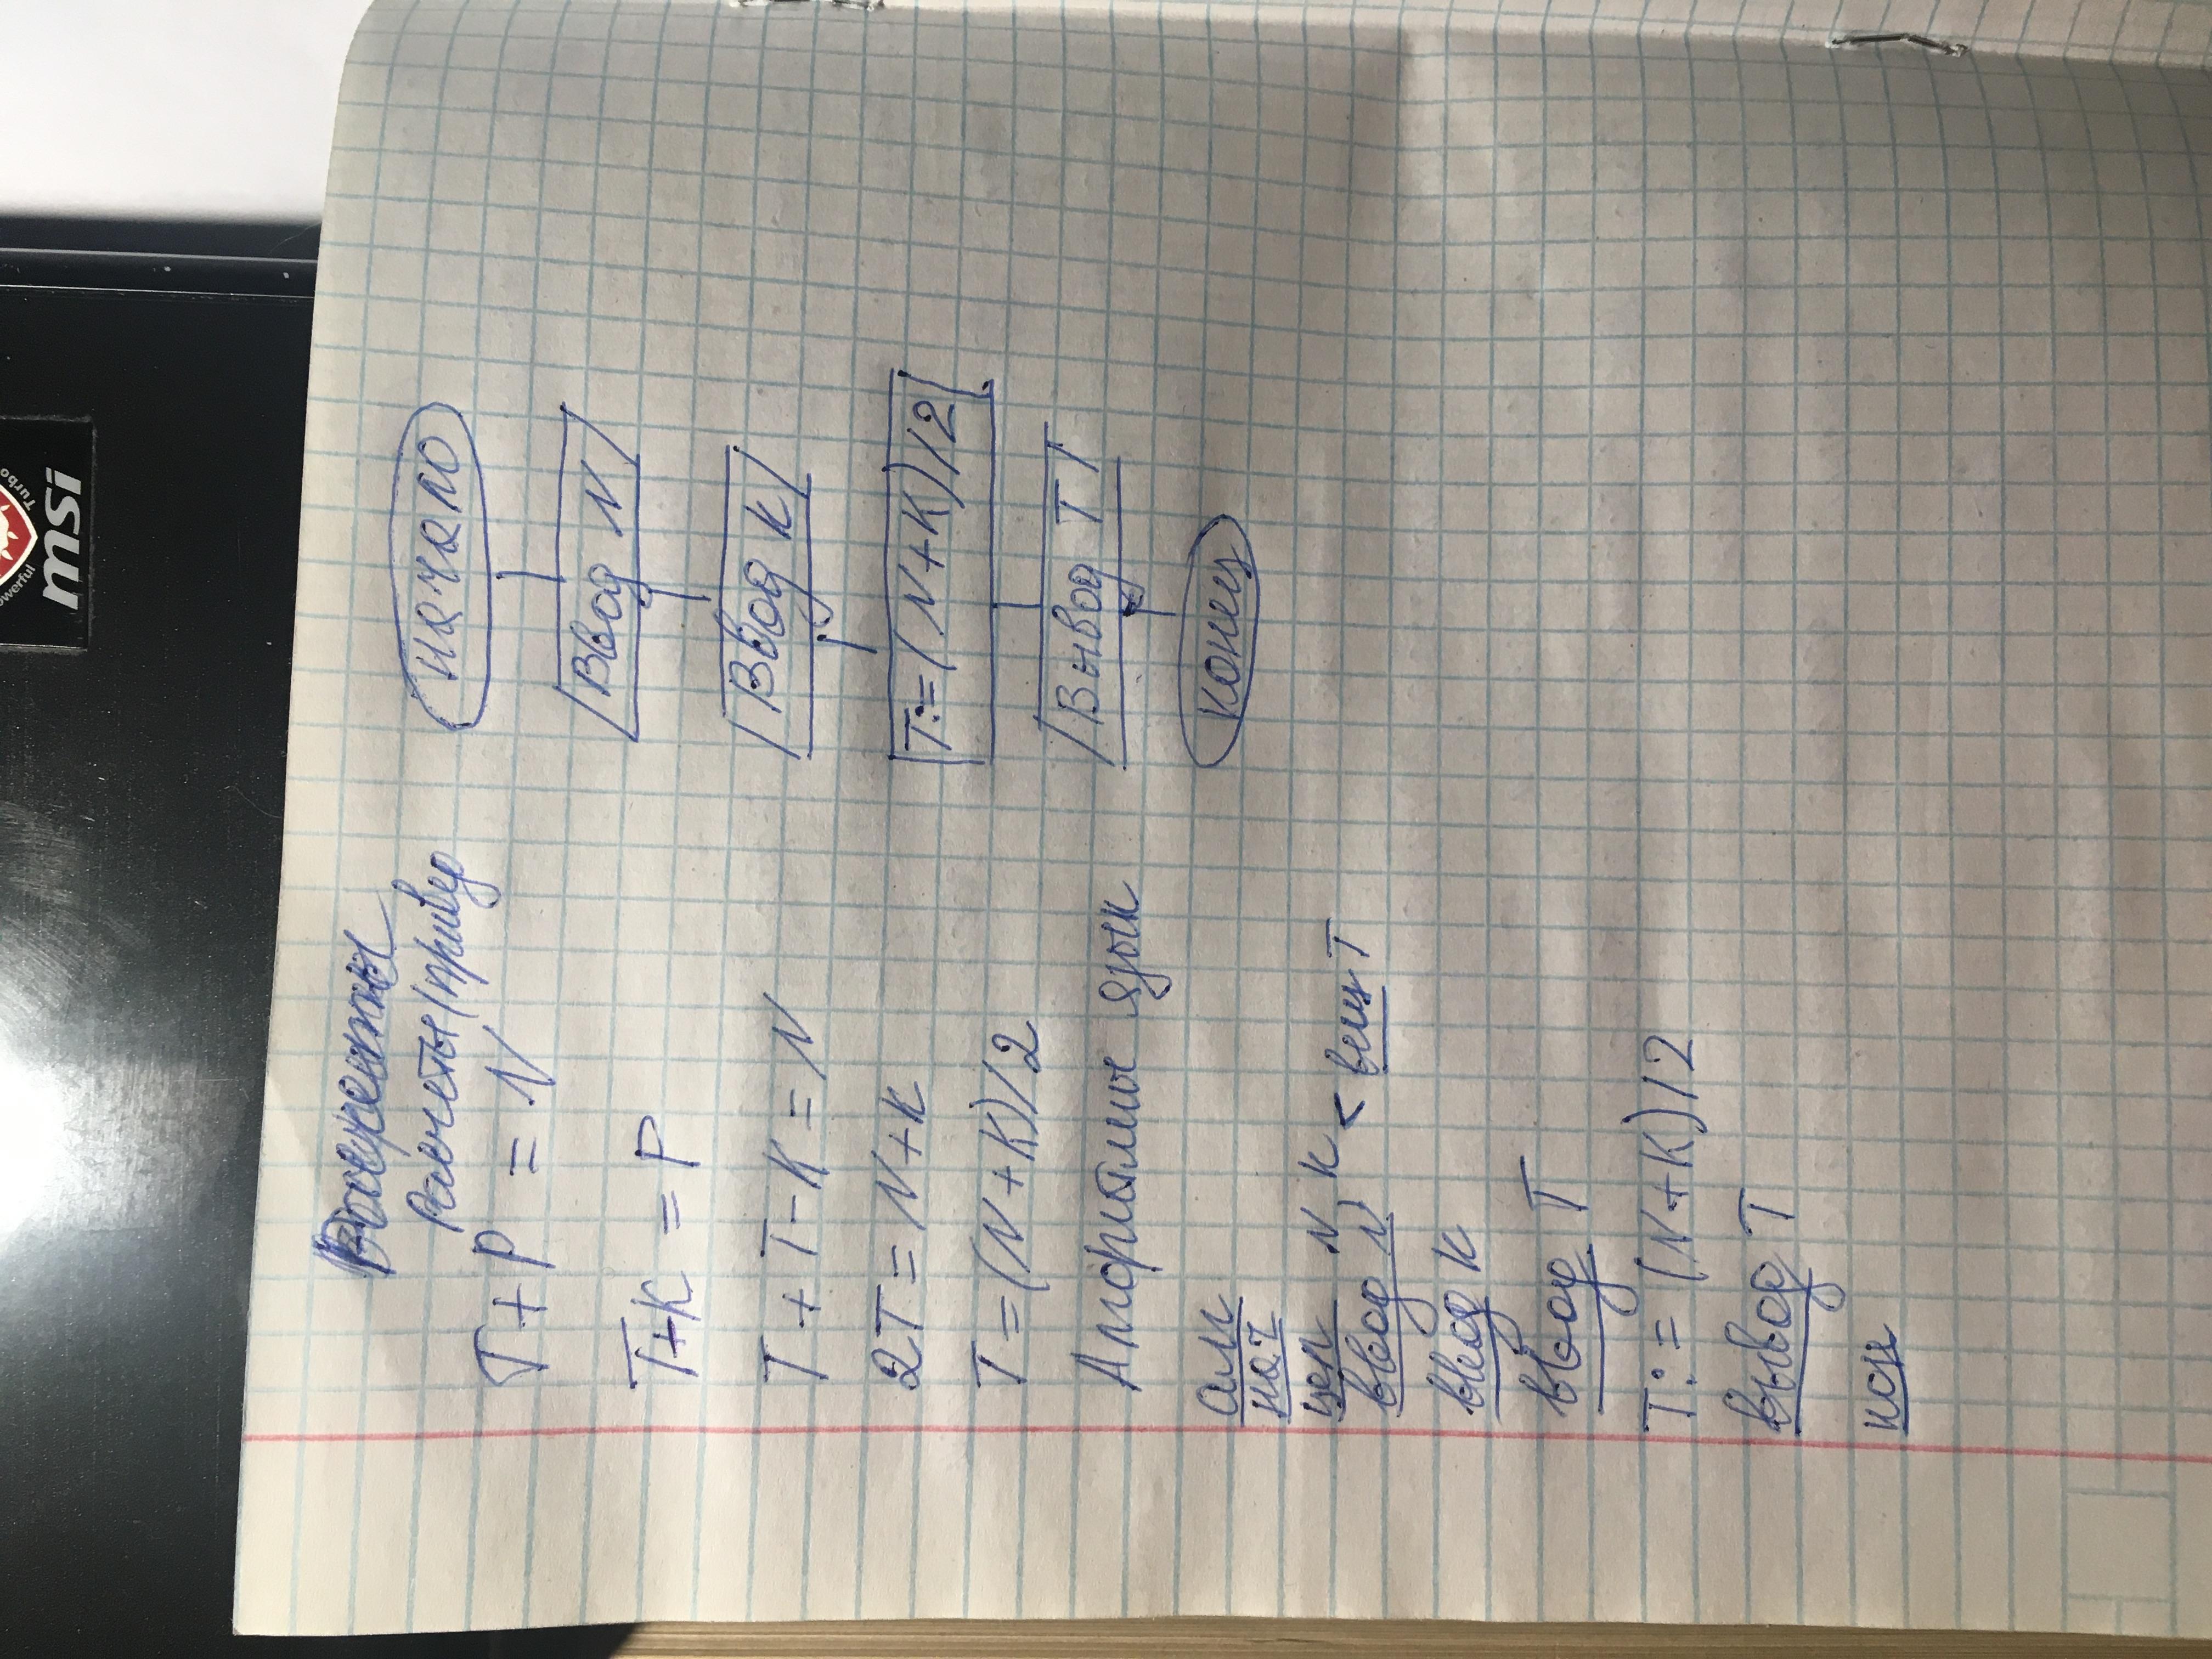 Расчеты/приввер
T+P = N
T+K = P
T+T-K=N
2T=N+K
T=(N+K)/2
Алгоритмич язык
алг
нач
цел N K < вещ T
ввод N
ввод K
ввод T
T:=(N+K)/2
вывод T
кон
начало
Ввод N
Ввод K
T:=(N+K)/2
Вывод T
конец
msi
Turbo